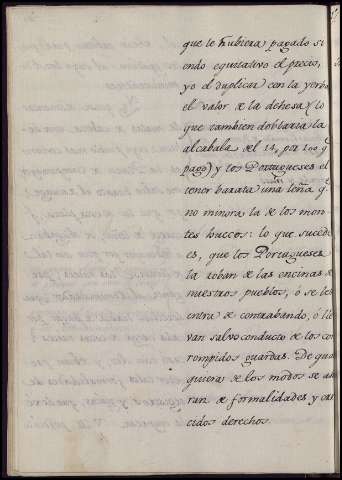 que le hubiera pagado si
endo equitativo el precio,
yo el duplicar con la yerba
el valor de la dehesa (lo
que tambien doblaria la
alcabala del 14, por 100 q.
pago) y los Portugueses el
tener barata una leña q.
no minora la de los mon-
tes huecos: lo que sucede
es, que los Portugueses
la roban de las encinas de
nuestros pueblos, ó se les
entra de contrabando, ó lle
van salvo conducto de los cor
rompidos guardas. De qual
quiera de los modos se
ran de formalidades y
derechos.